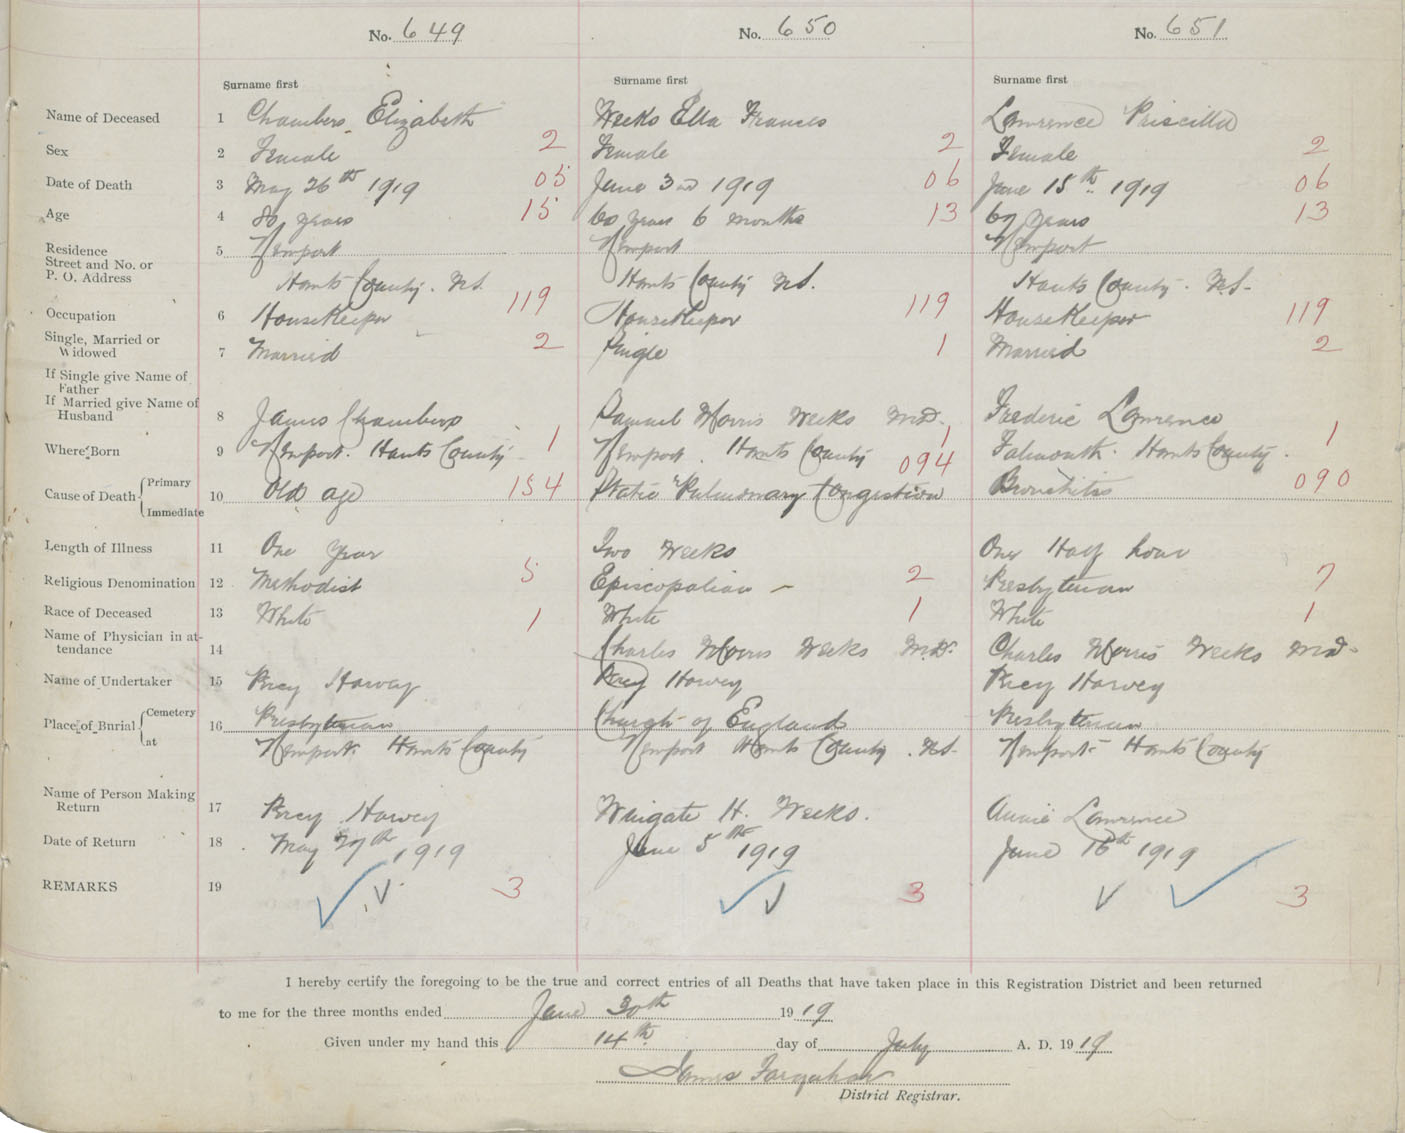 No. 649 No. 650 No. 651
Surname first Surname first Surname first
Name of Deceased 1 Chambers Elizabeth Weeks Ella Frances Lawrence Priscilla
Sex 2 Female 2 Female 2 Female 2
Date of Death 3 May 26th 1919 05 June 3rd 1919 06 June 15th 1919 06
Age 4 80 years 15 60 years 6 months 13 years 13
Residence
Street and No. or
P. O. Address 5 Newport Newport Newport
Hants County. N.S. Hants County N.S. Hants County. N.S.
Occupation 6 HouseKeeper 119 HouseKeeper 119 HouseKeeper 119
Single, Married or
Widowed 7 Married 2 Single 1 Married 2
If Single give Name of
Father
If Married give Name of
Husband 8 James Chambers Samuel Morris Weeks M.D. Frederic Lawrence
Where Born 9 Newport. Hants County 1 Newport. Hants County 1 Falmouth. Hants County. 1
Cause of Death Primary
Immediate 10 Old age 154 Static Pulmonary Congestion 094 Bronchitis 090
Length of Illness 11 One year Two weeks One Half hour
Religious Denomination 12 Methodist 5 Episcopalian 2 Presbyterian 7
Race of Deceased 13 White 1 White 1 White 1
Name of Physician in at-
tendance 14 Charles Morris Weeks M.D. Charles Morris Weeks M.D.
Name of Undertaker 15 Percy Harvey Percy Harvey Percy Harvey
Place of Burial Cemetery
at 16 Presbyterian Church of England Presbyterian
Newport Hants County Newport Hants County. N.S. Newport Hants County
Name of Person Making
Return 17 Percy Harvey Wingate H. Weeks. Annie Lawrence
Date of Return 18 May 27th 1919 June 5th 1919 June 16th 1919
REMARKS 19 3 3 3
I hereby certify the foregoing to be the true and correct entries of all Deaths that have taken place in this Registration District and been returned
to me for the three months ended June 30th 1919
Given under my hand this 14th day of July A. D. 1919
James Farquhar
District Registrar.